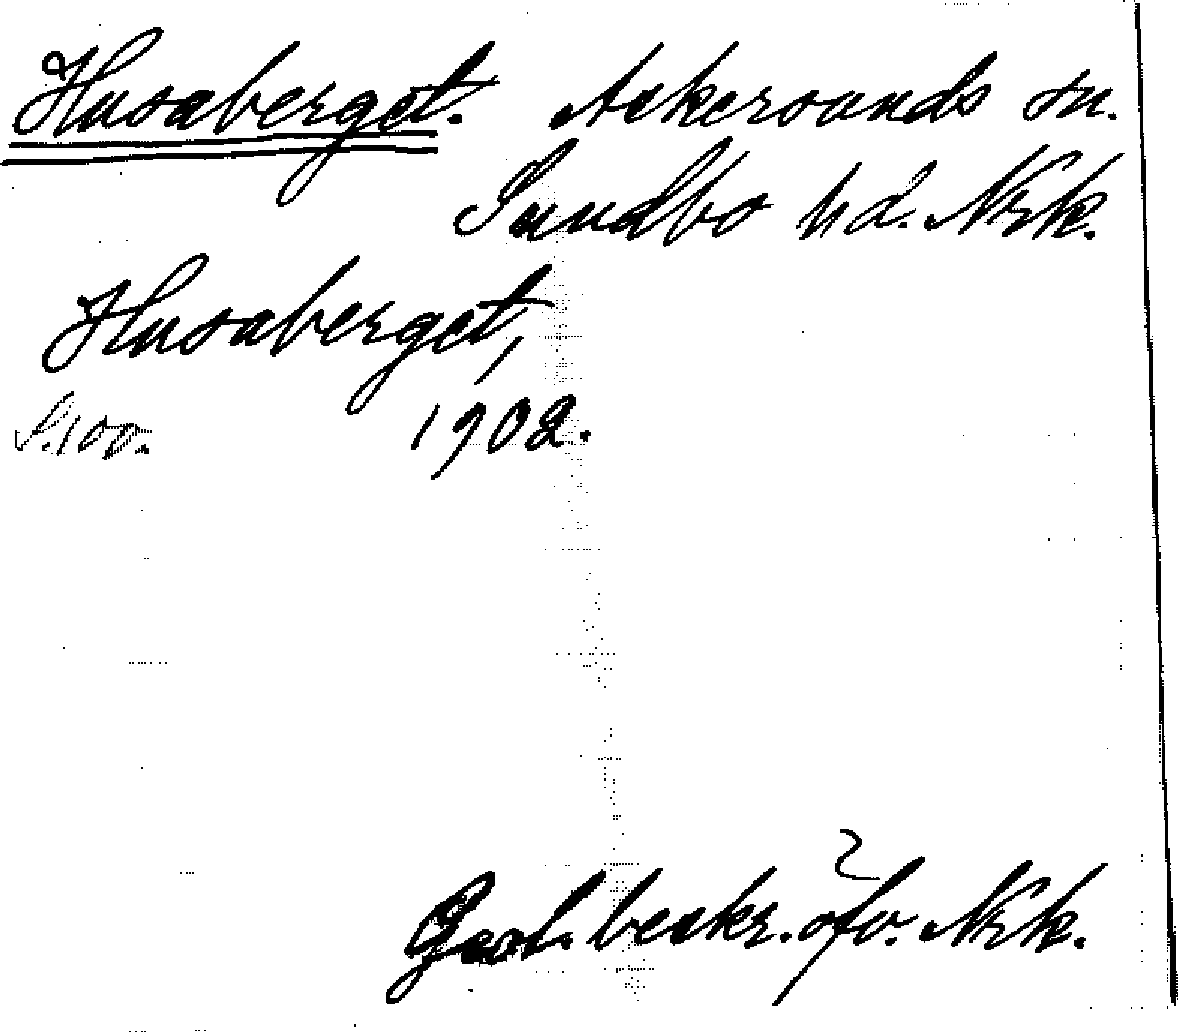 Husaberget. Askersunds sn.
Sundbo hd. Nrk.
Husaberget,
S.100. 1902.
Geol. beskr. öfv. Nrk.